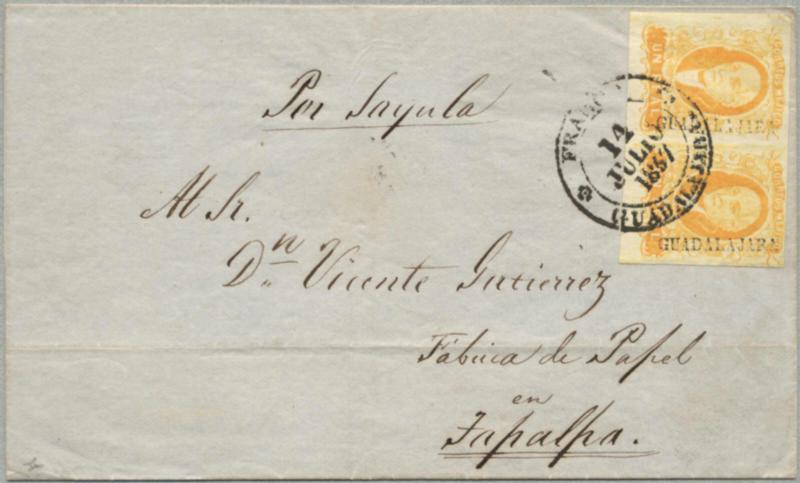 Por Sayula
Al Sr.
Dn Vicente Gutierrez
Fábrica de Papel
en
Tapalpa.
14
JULIO
GUADALAJARA
UN
GUADALAJARA
GUADALAJARA